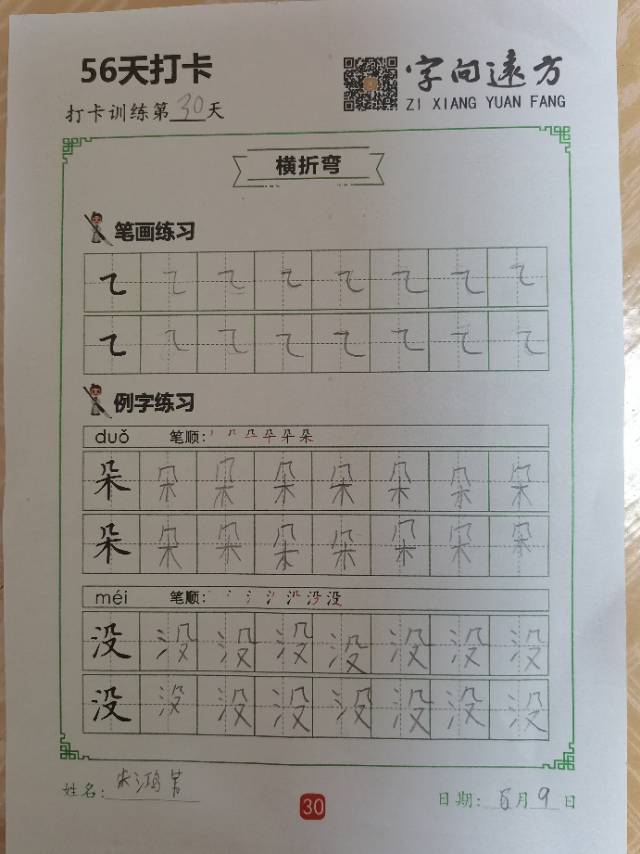 56天打卡
字向远方
ZI XIANG YUAN FANG
打卡训练第30天
横折弯
笔画练习
例字练习
duǒ 笔顺:
朵 朵 朵 朵 朵 朵 朵 朵
朵 朵 朵 朵 朵 朵 朵 朵
méi 笔顺:
没 没 没 没 没 没 没 没
没 没 没 没 没 没 没 没
姓名:
30
日期: 月9日